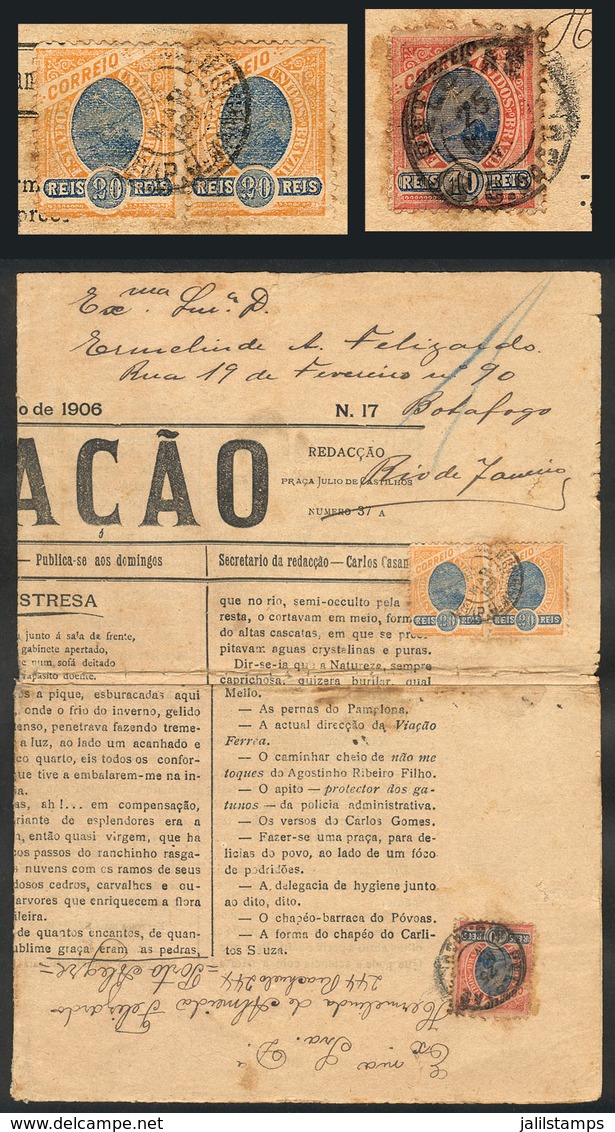 CORREIO
UNIDOS
REIS 20 REIS
REIS 20 REIS
CORREIO
UNIDOS DO BRAZIL
25
REIS 10 REIS
Exma Snra D.
Ermelinde A. Felizardo.
Rua 19 de Fevereiro nº 90
o de 1906 N. 17 Botafogo
REDACÇÃO
AÇÃO
PRAÇA JULIO DE CASTILHOS
Rio de Janeiro
NUMERO 37 A
— Publica-se aos domingos
Secretario da redacção — Carlos Casan
CORREIO
REIS 20 REIS
REIS 20 REIS
STRESA
junto á sala de frente,
gabinete apertado,
num sofá deitado
apasito doente.
s a pique, esburacadas aqui
onde o frio do inverno, gelido
enso, penetrava fazendo treme-
a luz, ao lado um acanhado e
co quarto, eis todos os confor-
que tive a embalarem-me na in-
ia.
as, ah!... em compensação,
riante de esplendores era a
n, então quasi virgem, que ha
cos passos do ranchinho rasga-
s nuvens com os ramos de seus
dosos cedros, carvalhes e ou-
arvores que enriquecem a flora
ileira.
de quantos encantos, de quan-
ublime graça eram as pedras,
que no rio, semi-occulto pela
resta, o cortavam em meio, form
do altas cascatas, em que se prec
pitavam aguas crystelinas e puras.
Dir-se-ia que a Natureza, sempre
caprichosa, quizera burilar, qual
Mello.
— As pernas do Pamplona.
— A actual direcção da Viação
Ferrea.
— O caminhar cheio de não me
toques do Agostinho Ribeiro Filho.
— O apito — protector dos ga-
tunos — da policia administrativa.
— Os versos do Carlos Gomes.
— Fazer-se uma praça, para de-
licias do povo, ao lado de um fóco
de podridões.
— A delegacia de hygiene junto
ao dito, dito.
— O chapéo-barraca do Póvoas.
— A forma do chapéo do Carli-
tos Souza.
CORREIO
REIS 10 REIS
Exma Sra. D.
Hermelinda de Almeida Felizardo
244 Riachuelo 244
= Porto Alegre =
www.jalilstamps.com